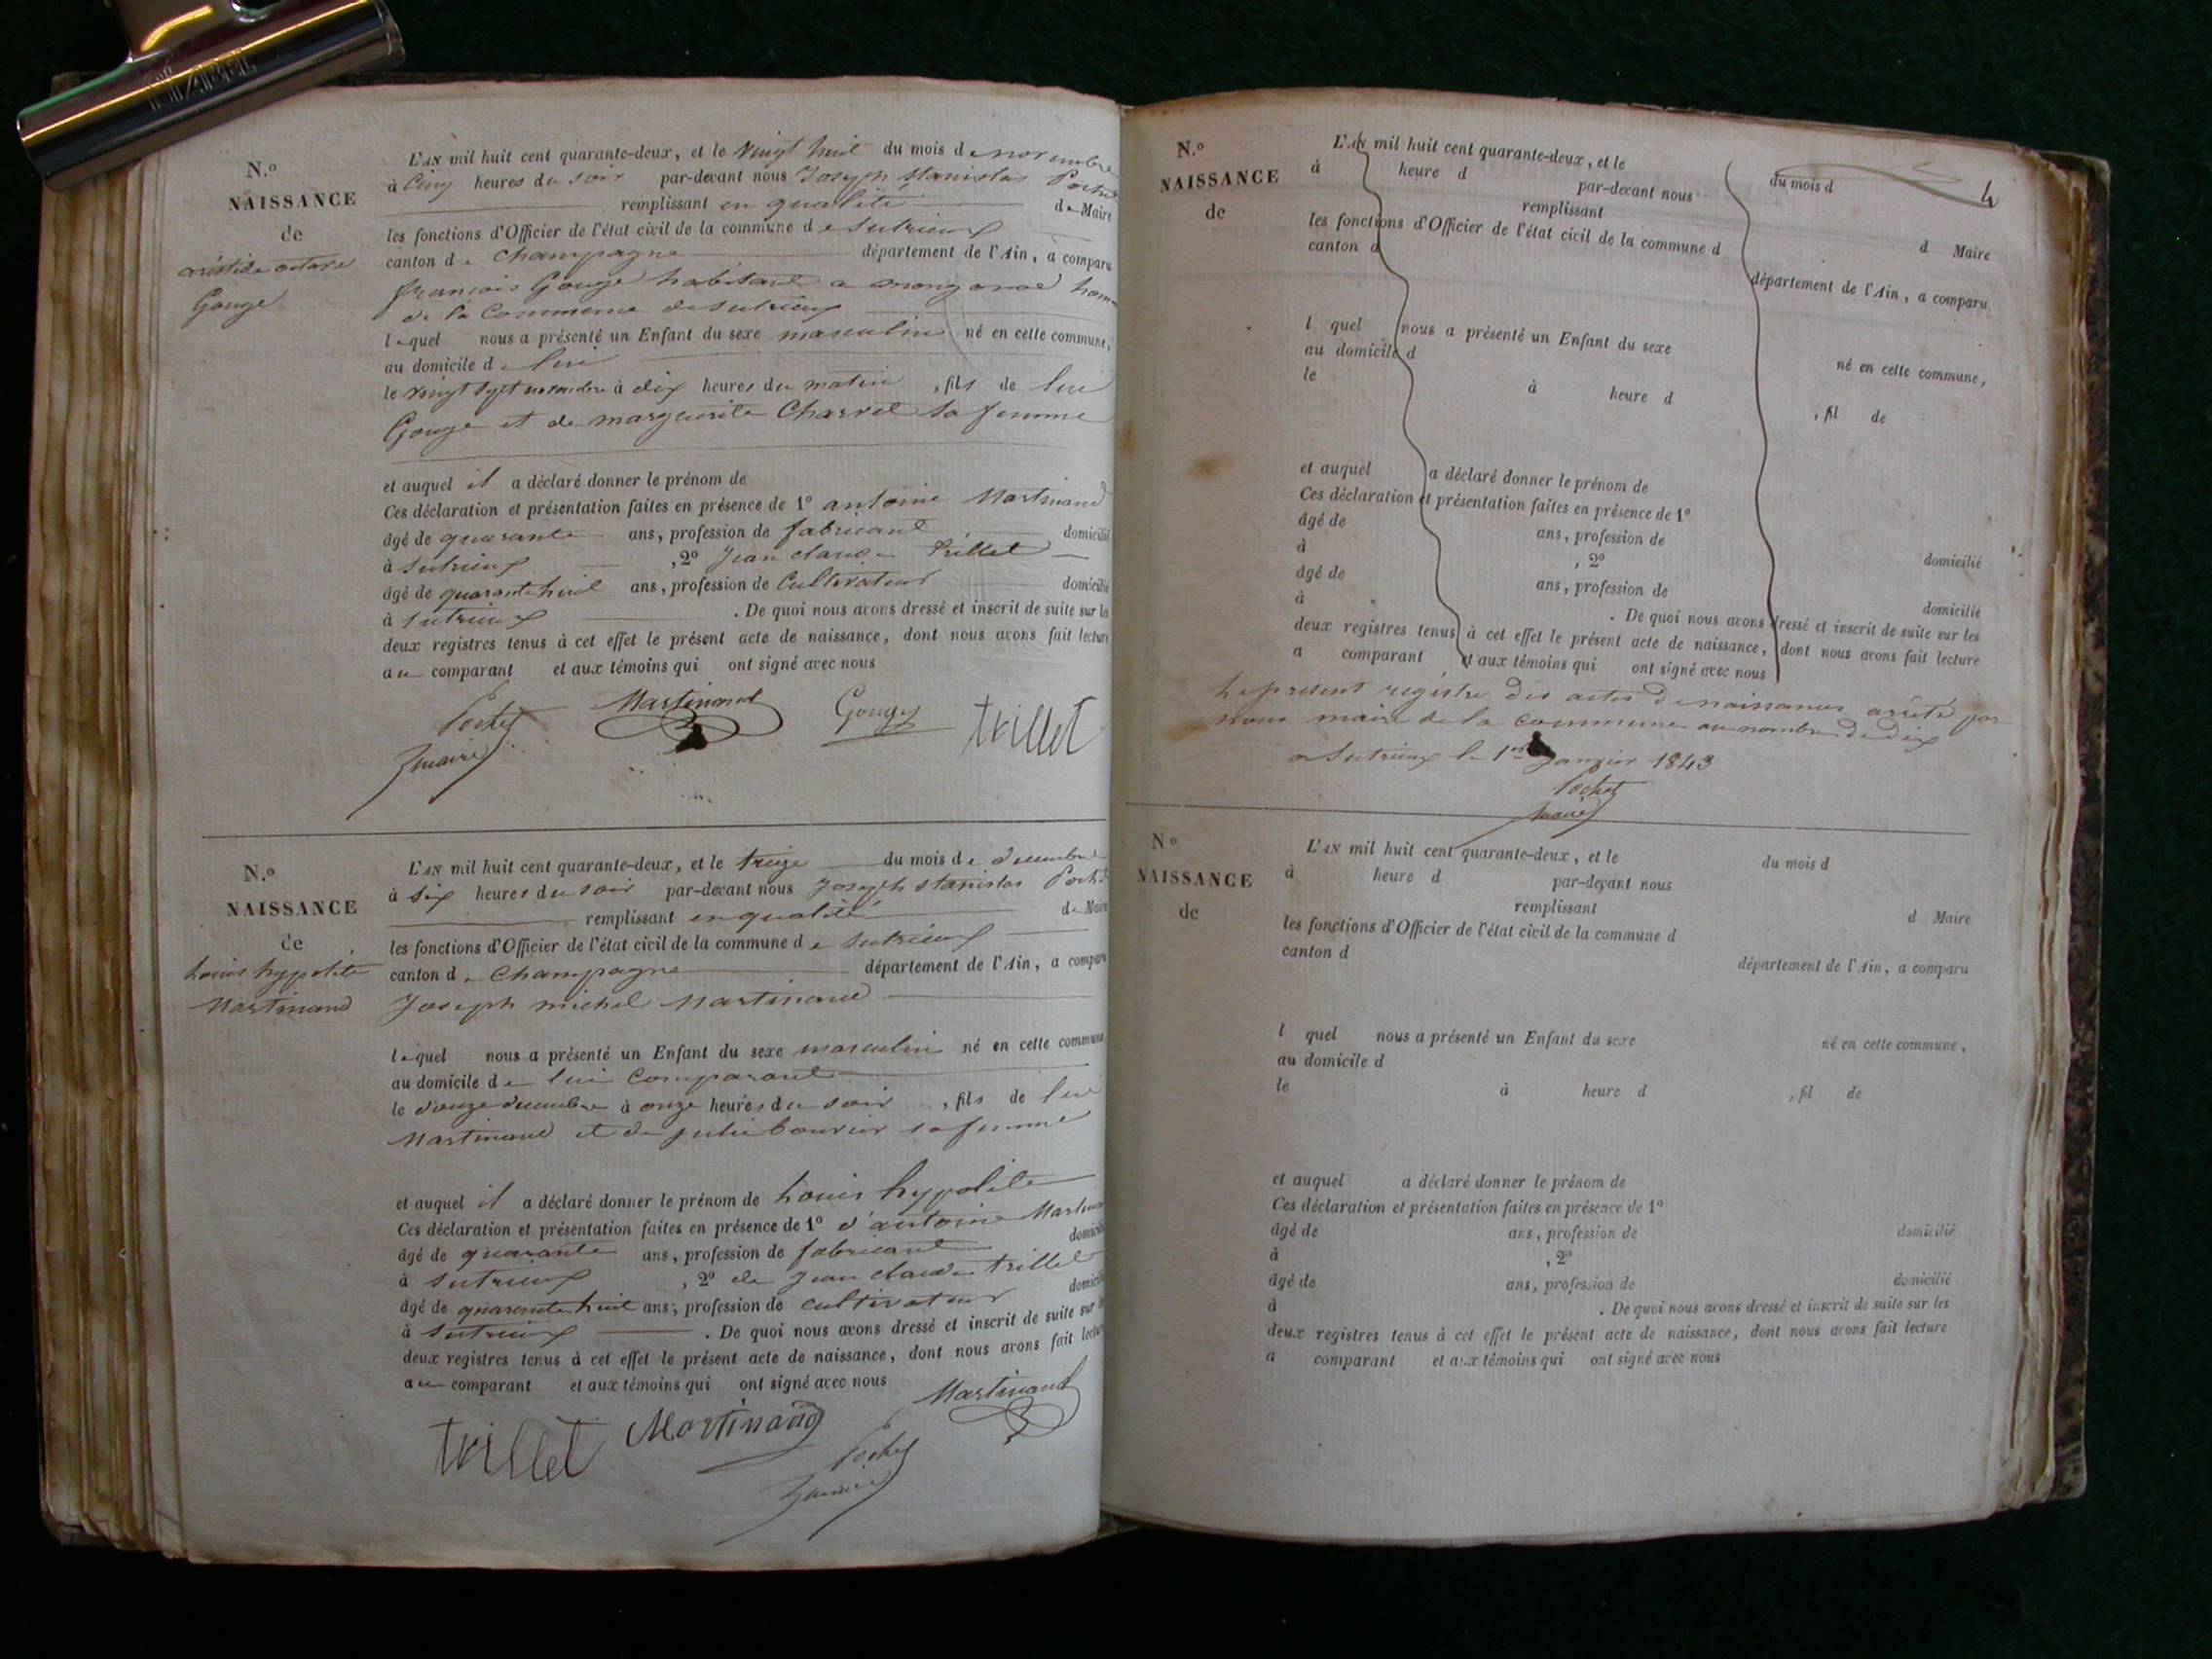 N.o
NAISSANCE
de
aristide octave
Gouge
L'AN mil huit cent quarante-deux, et le vingt huit du mois de novembre
à cinq heures du soir par-devant nous Joseph Stanislas Pochet
remplissant en qualité de Maire
les fonctions d'Officier de l'état civil de la commune de Sutrieux
canton de Champagne département de l'Ain, a comparu
françois Gouge habitant a
de la Commune de Sutrieux
lequel nous a présenté un Enfant du sexe masculin né en cette commune,
au domicile de lui
le vingt sept novembre à dix heures du matin, fils de lui
Gouge et de marguerite Charvet sa femme
et auquel il a déclaré donner le prénom de
Ces déclaration et présentation faites en présence de 1o antoine Martinand
âgé de quarante ans, profession de fabricant domicilié
à Sutrieux, 2o Jean claude trillet
âgé de quarante huit ans, profession de Cultivateur domicilié
à Sutrieux. De quoi nous avons dressé et inscrit de suite sur les
deux registres tenus à cet effet le présent acte de naissance, dont nous avons fait lecture
au comparant et aux témoins qui ont signé avec nous
Pochet Martinand Gouge trillet
maire
N.o
NAISSANCE
de
Louis hypolite
Martinand
L'AN mil huit cent quarante-deux, et le treize du mois de decembre
à six heures du soir par-devant nous Joseph Stanislas Pochet
remplissant en qualité de Maire
les fonctions d'Officier de l'état civil de la commune de Sutrieux
canton de Champagne département de l'Ain, a comparu
Joseph michel Martinand
lequel nous a présenté un Enfant du sexe masculin né en cette commune
au domicile de lui Comparant
le douze decembre à onze heures du soir, fils de lui
Martinand et de julie bouvier sa femme
et auquel il a déclaré donner le prénom de Louis hypolite
Ces déclaration et présentation faites en présence de 1o d'antoine Martinand
âgé de quarante ans, profession de fabricant domicilié
à Sutrieux, 2o de Jean claude trillet
âgé de quarante huit ans, profession de cultivateur domicilié
à Sutrieux. De quoi nous avons dressé et inscrit de suite sur les
deux registres tenus à cet effet le présent acte de naissance, dont nous avons fait lecture
au comparant et aux témoins qui ont signé avec nous
Martinand
trillet Martinand Pochet
maire
4
N.o
NAISSANCE
de
L'AN mil huit cent quarante-deux, et le du mois d
à heure d par-devant nous
remplissant d Maire
les fonctions d'Officier de l'état civil de la commune d
canton d département de l'Ain, a comparu
l quel nous a présenté un Enfant du sexe né en cette commune,
au domicile d
le à heure d , fil de
et auquel a déclaré donner le prénom de
Ces déclaration et présentation faites en présence de 1o
âgé de ans, profession de domicilié
à , 2o
âgé de ans, profession de domicilié
à . De quoi nous avons dressé et inscrit de suite sur les
deux registres tenus à cet effet le présent acte de naissance, dont nous avons fait lecture
a comparant et aux témoins qui ont signé avec nous
Le present registre des actes de naissances arrêté par
nous maire de la commune au nombre de dix
a Sutrieux le 1er Janvier 1843
Pochet
maire
N.o
NAISSANCE
de
L'AN mil huit cent quarante-deux, et le du mois d
à heure d par-devant nous
remplissant d Maire
les fonctions d'Officier de l'état civil de la commune d
canton d département de l'Ain, a comparu
l quel nous a présenté un Enfant du sexe né en cette commune,
au domicile d
le à heure d , fil de
et auquel a déclaré donner le prénom de
Ces déclaration et présentation faites en présence de 1o
âgé de ans, profession de domicilié
à , 2o
âgé de ans, profession de domicilié
à . De quoi nous avons dressé et inscrit de suite sur les
deux registres tenus à cet effet le présent acte de naissance, dont nous avons fait lecture
a comparant et aux témoins qui ont signé avec nous